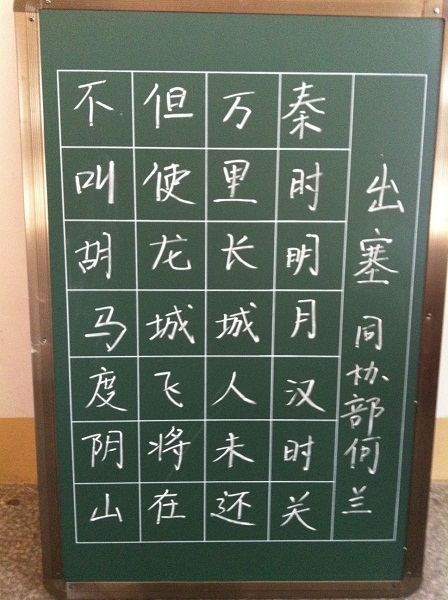 出塞 同协部何兰
秦时明月汉时关
万里长城人未还
但使龙城飞将在
不叫胡马度阴山